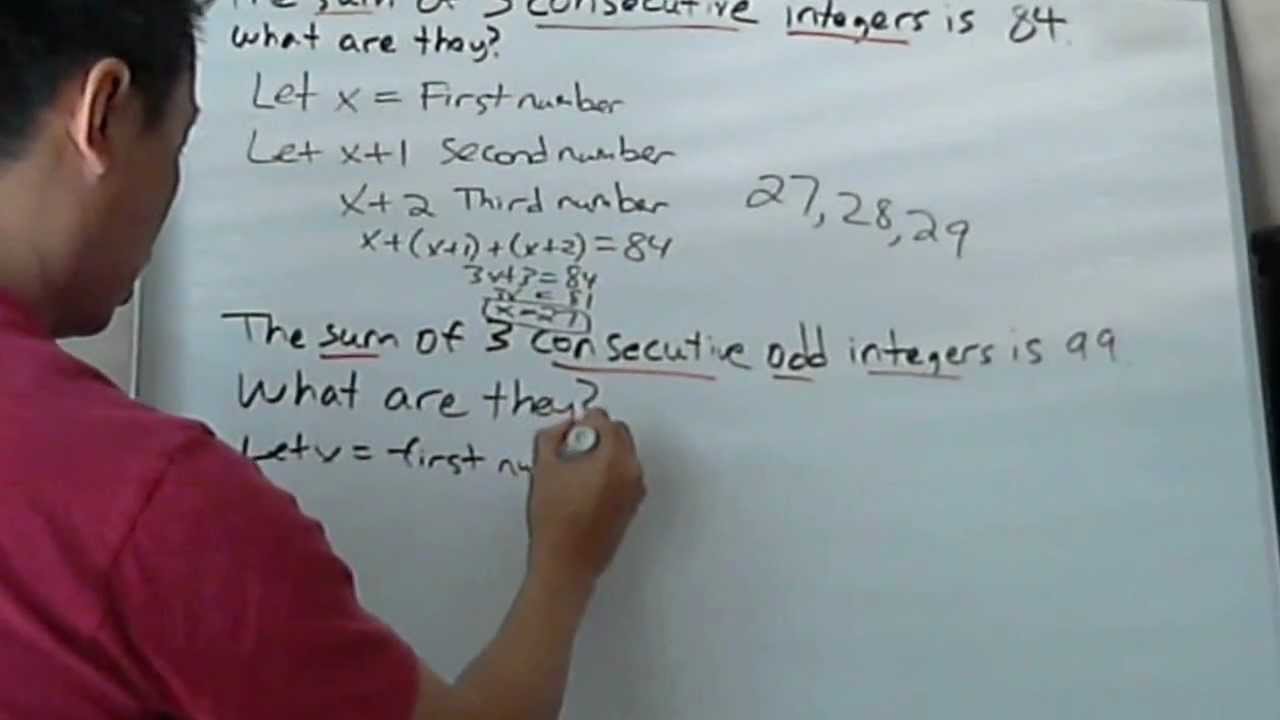 The sum of 3 consecutive integers is 84.
What are they?
Let x = First number
Let x+1 Second number
x+2 Third number
27, 28, 29
x+(x+1)+(x+2)=84
3x+3=84
3x = 81
x=27
The sum of 3 consecutive odd integers is 99
What are they?
Let x = first nu